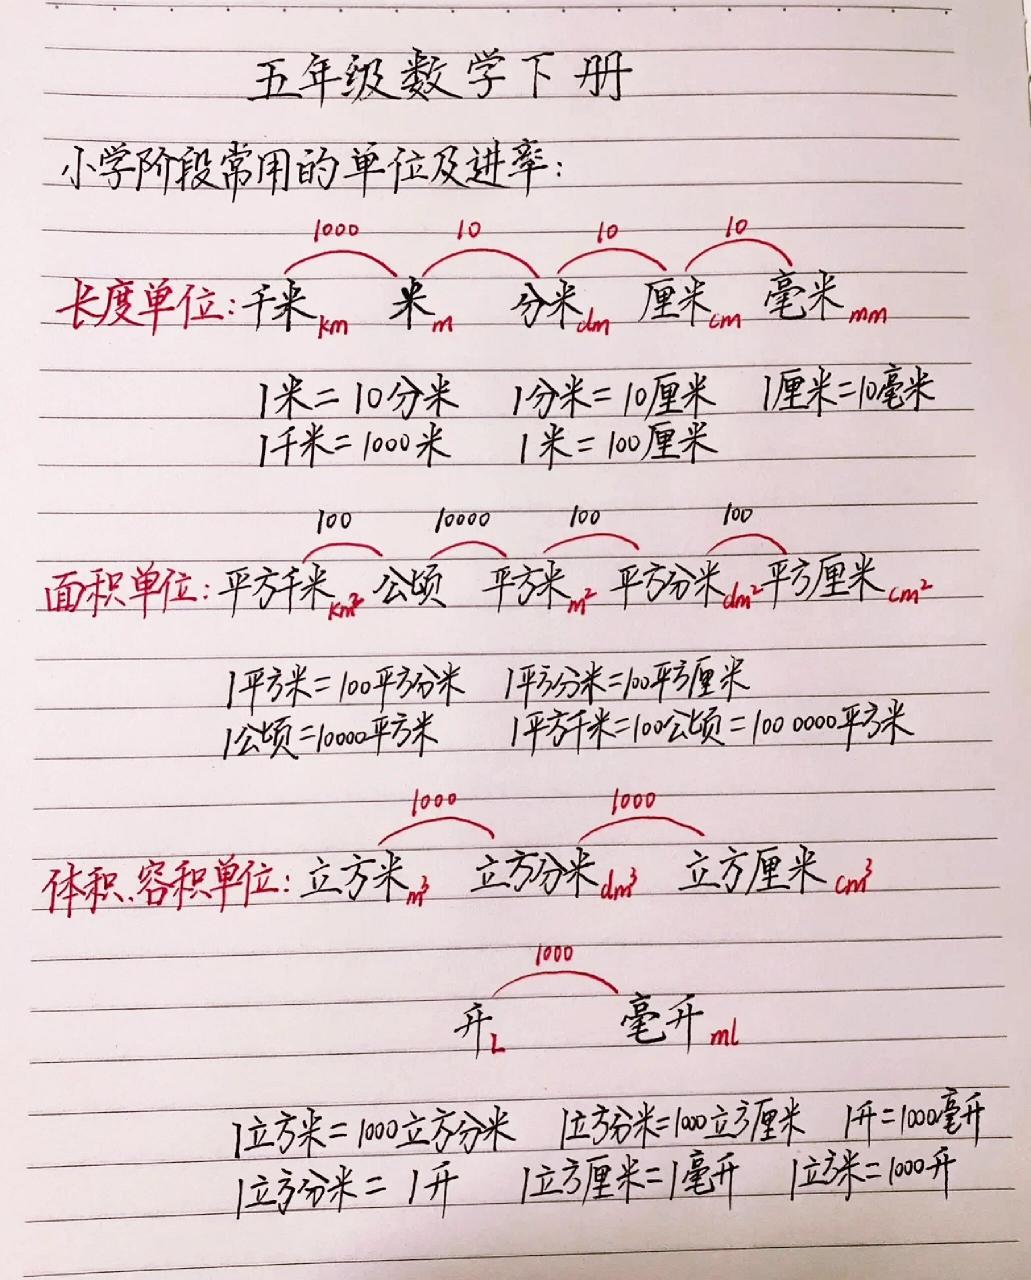 五年级数学下册
小学阶段常用的单位及进率:
1000 10 10 10
长度单位:千米km 米m 分米dm 厘米cm 毫米mm
1米=10分米 1分米=10厘米 1厘米=10毫米
1千米=1000米 1米=100厘米
100 10000 100 100
面积单位:平方千米km² 公顷 平方米m² 平方分米dm² 平方厘米cm²
1平方米=100平方分米 1平方分米=100平方厘米
1公顷=10000平方米 1平方千米=100公顷=100 0000平方米
1000 1000
体积、容积单位:立方米m³ 立方分米dm³ 立方厘米cm³
1000
升L 毫升ml
1立方米=1000立方分米 1立方分米=1000立方厘米 1升=1000毫升
1立方分米=1升 1立方厘米=1毫升 1立方米=1000升